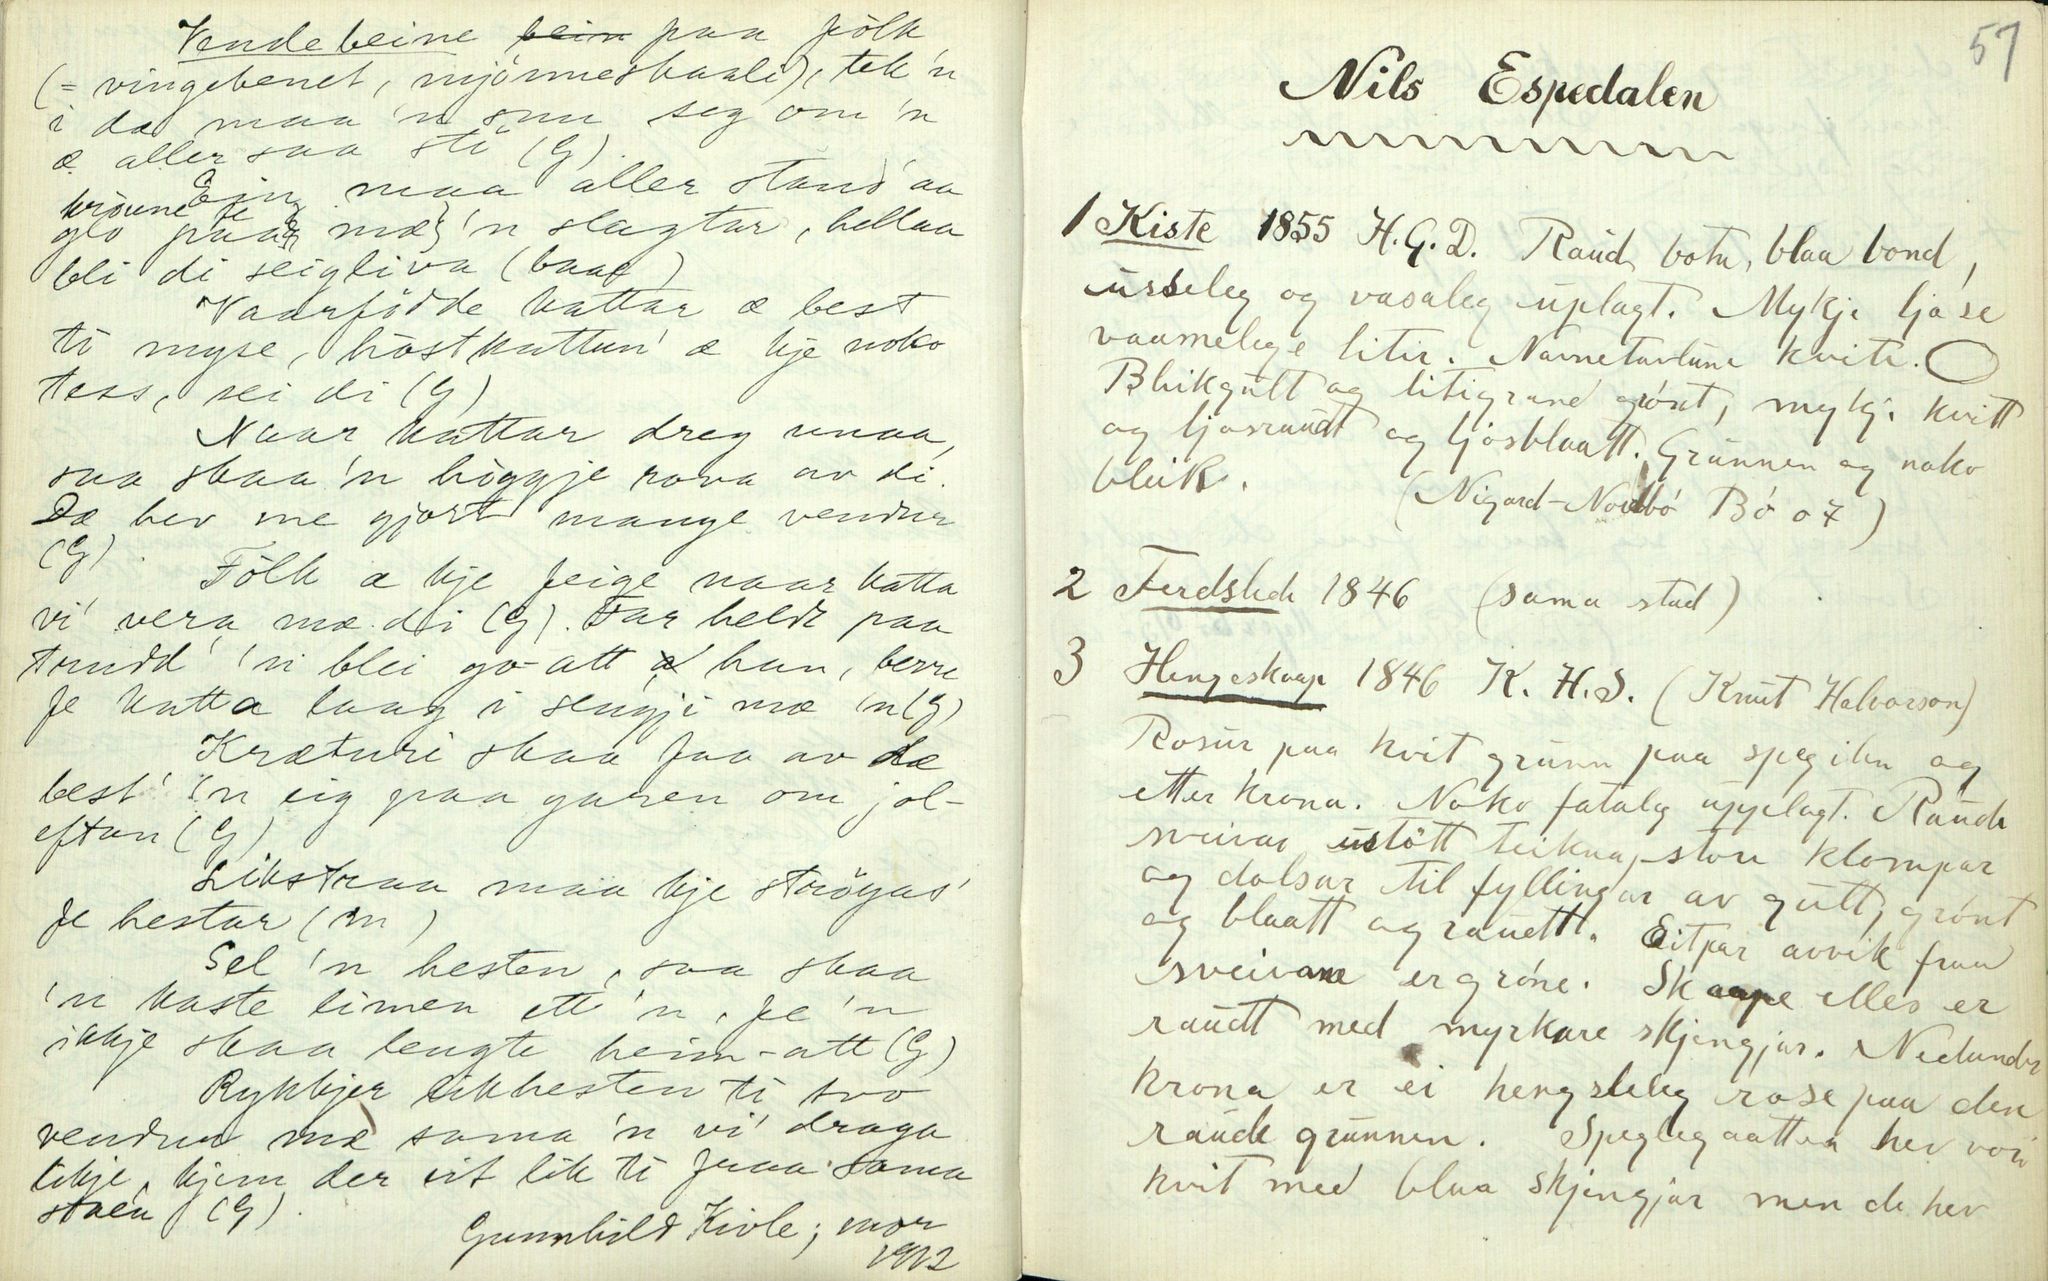 Vendebeine bein paa fólk
(= vingebenet, mjönneskaali), tek 'n
i da maa 'n snu seg om 'n
æ aller saa sti (G)
Ein maa aller stand' aa
glo paa krøune te mæ 'n slagtar, hellaa
bli di seigliva (baae)
Vaarfödde kattar æ best
ti myse, höstkattun' æ kje noko
tess, sei di (G)
Naar kattar dreg unaa,
saa skaa 'n höggje rova av di.
Dæ hev me gjort mange vendur
(G).
Fólk æ kje feige naar katta
vi' vera mæ di (G). Far heldt paa
trudd' 'n blei go-att han, berre
fe katta laag i sengji mæ 'n (G)
Kræturi skaa faa av dæ
best' 'n eig paa garen om jol-
eftan (G)
Likstraa maa kje ströyas'
fe hestar (m)
Sel 'n hesten, saa skaa
'n kaste limen ett 'n, fe 'n
ikkje skaa lengte heim-att (G)
Rykkjer likhesten ti tvo
vendur mæ sama 'n vi' draga
likje, kjem der eit lik ti fraa sama
staen (G).
Gunnhild Kivle; mor
1912
57
Nils Espedalen
1 Kiste 1855 H.G.D. Raud botn, blaa bond,
usseleg og vasaleg uplagt. Mykje ljose
vaamelege litir. Namnetavlune kvite.
Bleikgult og litigrand grönt, mykje kvitt
og ljosraudt og ljosblaatt. Grunnen og noko
bleik. (Nigard-Nordbó Bó 07)
2 Ferdsleda 1846 (sama stad)
3 Hengeskaap 1846 K. H. S. (Knut Halvorson)
Rosur paa kvit grunn paa spegilen og
etter krona. Noko fataleg upplagt. Raude
sveivar ustött teikna, store klompar
og dolsur til fyllingar av gult, grönt
og blaatt og raudtt. Eitpar avvik fraa
sveivane er gröne. Skaape elles er
raudt med myrkare skjengjar. Nedunder
krona er ei hengsleleg rose paa den
raude grunnen. Speglegaatten hev vori
kvit med blaa skjengjar men de hev